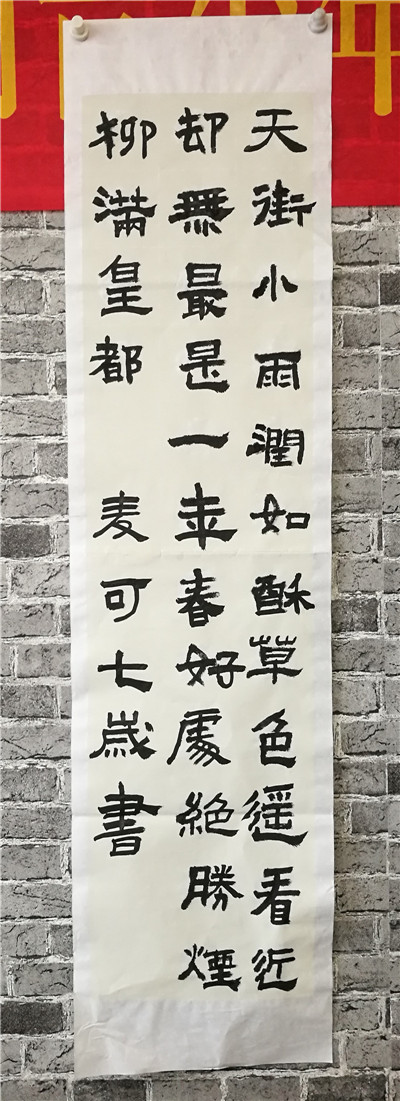 天街小雨潤如酥草色遥看近
却無最是一年春好處絶勝煙
柳滿皇都 麦可七歲書